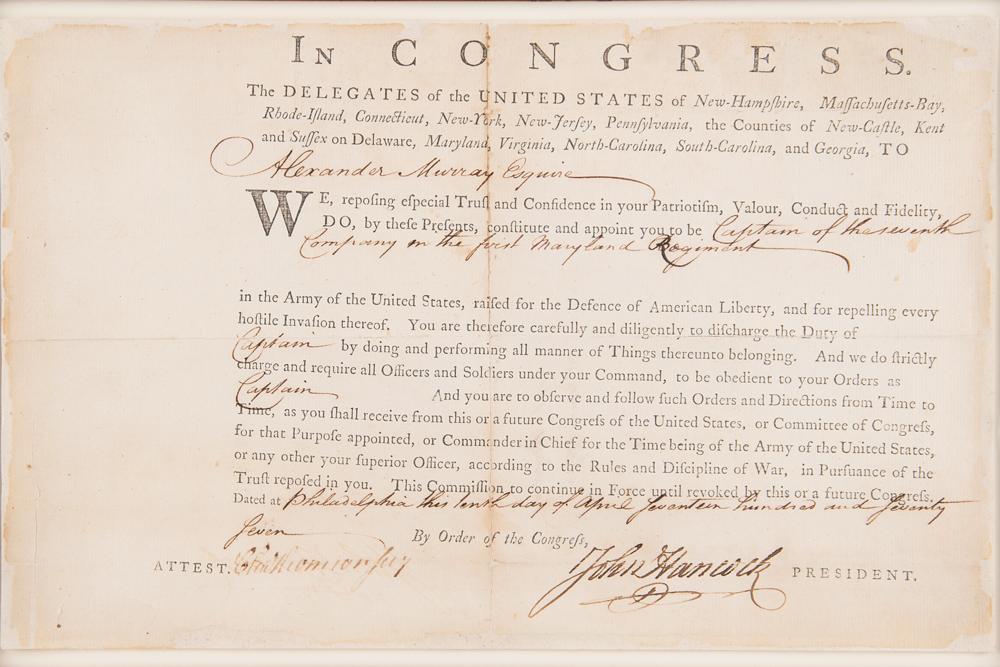 In CONGRESS.
The DELEGATES of the UNITED STATES of New-Hampſhire, Maſſachuſetts-Bay,
Rhode-Iſland, Connecticut, New-York, New-Jerſey, Pennſylvania, the Counties of New-Caſtle, Kent
and Suſſex on Delaware, Maryland, Virginia, North-Carolina, South-Carolina, and Georgia, TO
Alexander Murray Esquire
WE, repoſing eſpecial Truſt and Confidence in your Patriotiſm, Valour, Conduct and Fidelity,
DO, by theſe Preſents, conſtitute and appoint you to be Captain of the seventh
Company in the first Maryland Regiment
in the Army of the United States, raiſed for the Defence of American Liberty, and for repelling every
hoſtile Invaſion thereof. You are therefore carefully and diligently to diſcharge the Duty of
Captain by doing and performing all manner of Things thereunto belonging. And we do ſtrictly
charge and require all Officers and Soldiers under your Command, to be obedient to your Orders as
Captain And you are to obſerve and follow ſuch Orders and Directions from Time to
Time, as you ſhall receive from this or a future Congreſs of the United States, or Committee of Congreſs,
for that Purpoſe appointed, or Commander in Chief for the Time being of the Army of the United States,
or any other your ſuperior Officer, according to the Rules and Diſcipline of War, in Purſuance of the
Truſt repoſed in you. This Commiſſion to continue in Force until revoked by this or a future Congreſs.
Dated at Philadelphia this tenth day of April ſeventeen hundred and ſeventy
ſeven
By Order of the Congreſs,
ATTEST. Chas Thomson ſecy John Hancock PRESIDENT.